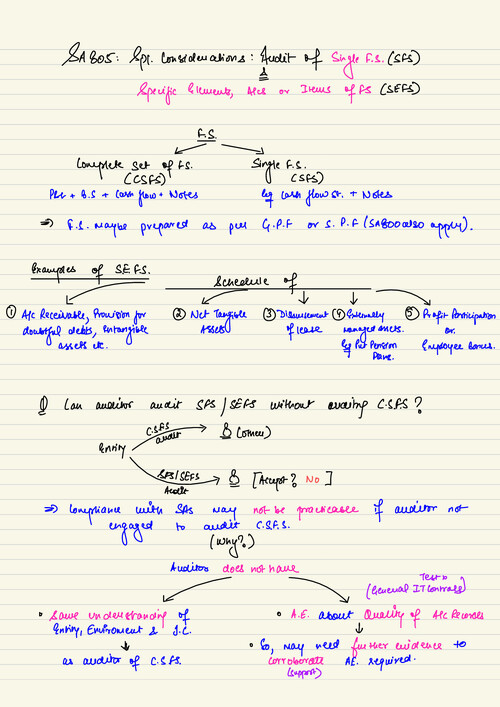 SA805: Spl. Considerations: Audit of Single F.S. (SFS)
&
Specific Elements, A/cs or Items of FS (SEFS)
F.S.
Complete Set of F.S. (CSFS)
P&L + B.S + Cash flow + Notes
Single F.S. (SFS)
Eg Cash flow St. + Notes
⇒ F.S. maybe prepared as per G.P.F or S.P.F (SA800 also apply).
Examples of S.E.F.S.
Schedule of
① A/c Receivable, Provision for
doubtful debts, Intangible
assets etc.
② Net Tangible
Assets
③ Disbursement
of lease
④ Externally
managed assets.
Eg Pvt Pension
Plans.
⑤ Profit Participation
or
Employee Bonus.
Q Can auditor audit SFS/SEFS without auditing C.S.F.S?
Entity
C.S.F.S
audit
(other)
SFS/SEFS
Audit
[Accept? No]
⇒ Compliance with SAs may not be practicable if auditor not
engaged to audit C.S.F.S.
(Why?)
Auditor does not have
• Same understanding of
Entity, Enviroment & I.C.
as auditor of C.S.F.S.
Test
(General IT Controls)
• A.E. about Quality of A/c Records
• So, may need further evidence to
corroborate A.E. required.
(support)